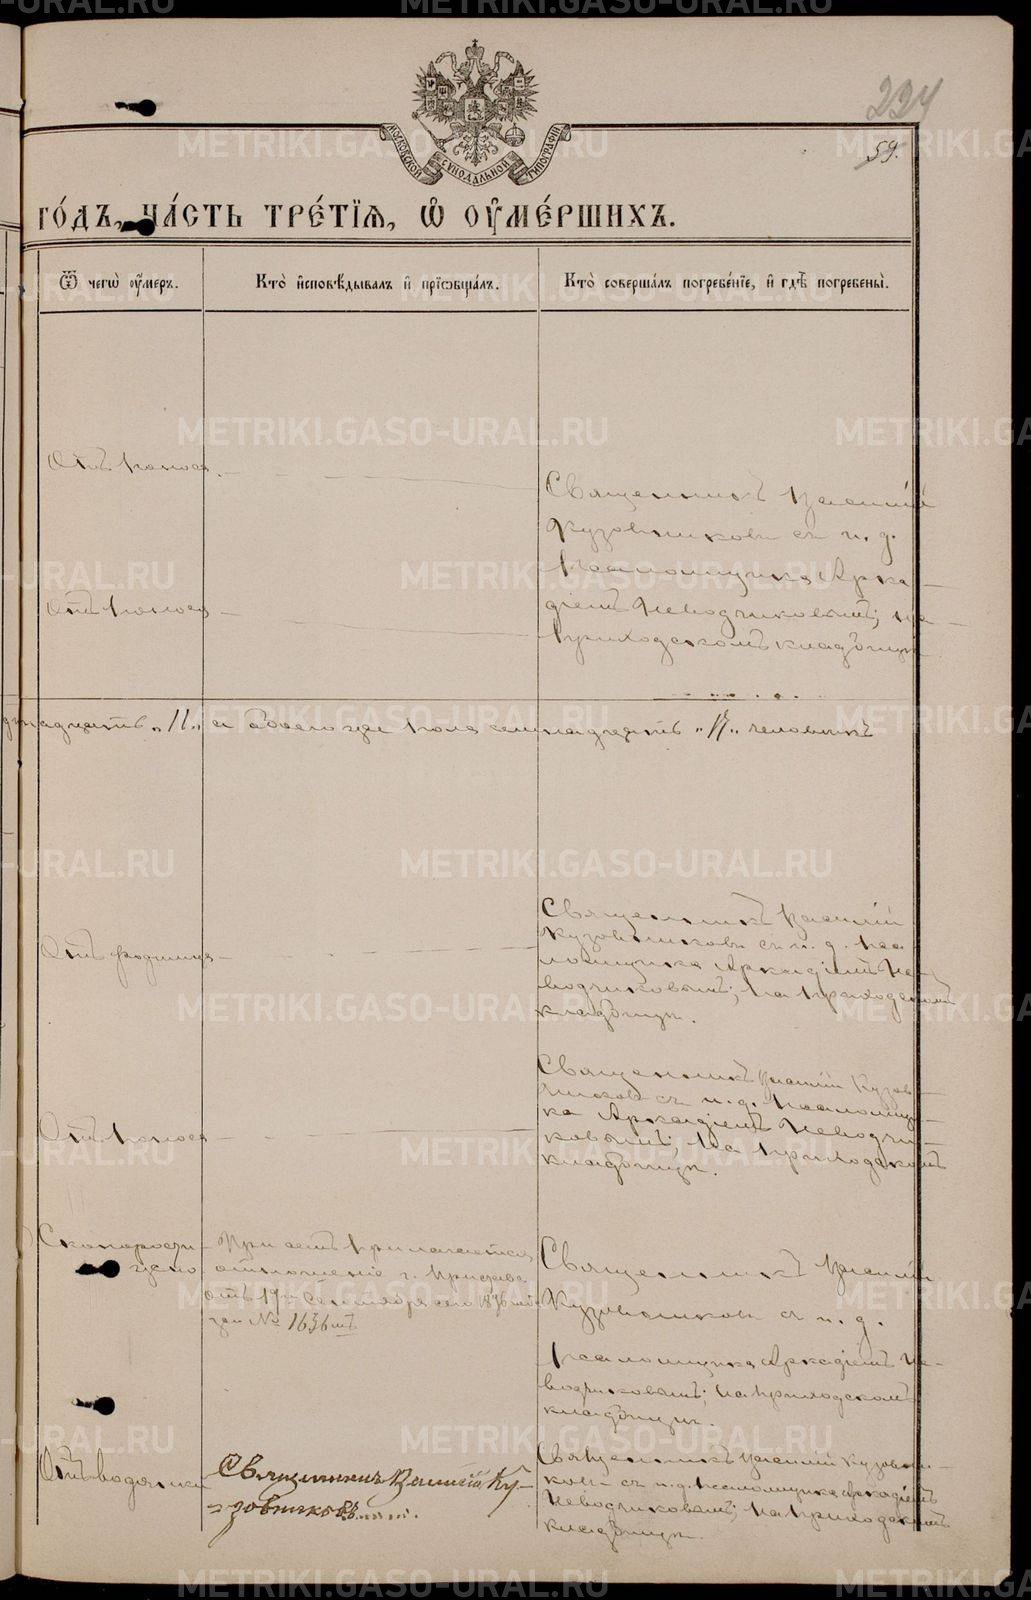 224
59.
МОСКОВСКОЙ СѴНОДАЛЬНОЙ ТИПОГРАФІИ
го́дъ, ча́сть тре́тїѧ, ѡ҆ ᲂу҆ме́ршихъ.
Ѿ чегѡ̀ ᲂу҆́меръ.
Кто̀ и҆сповѣ́дывалъ и҆ прїѡбща́лъ.
Кто̀ соверша́лъ погребе́нїе, и҆ гдѣ̀ погребены̀.
Отъ поноса
Священникъ Василій
Кузовниковъ съ и. д.
псаломщика Арка-
діемъ Неводчиковымъ; на
приходскомъ кладбищѣ
Отъ поноса
"11" а обоего же пола семнадцать "17" человѣкъ
Отъ родимца
Священникъ Василій
Кузовниковъ съ и. д. пса-
ломщика Аркадіемъ Не-
водчиковымъ; на приходскомъ
кладбищѣ.
Отъ поноса
Священникъ Василій Кузов-
никовъ съ и. д. псаломщи-
ка Аркадіемъ Неводчи-
ковымъ; на приходскомъ
кладбищѣ.
Скоропости-
жно
При семъ прилагается
отношеніе г. Пристава
отъ 17го Сентября сего 1896 года
за № 1636мъ
Священникъ Василій
Кузовниковъ съ и. д.
псаломщика Аркадіемъ Не-
водчиковымъ; на приходскомъ
кладбищѣ.
Отъ водянки
Священникъ Василій Ку-
зовниковъ
Священникъ Василій Кузовни-
ковъ съ и. д. псаломщика Аркадіемъ
Неводчиковымъ; на приходскомъ
кладбищѣ.
METRIKI.GASO-URAL.RU